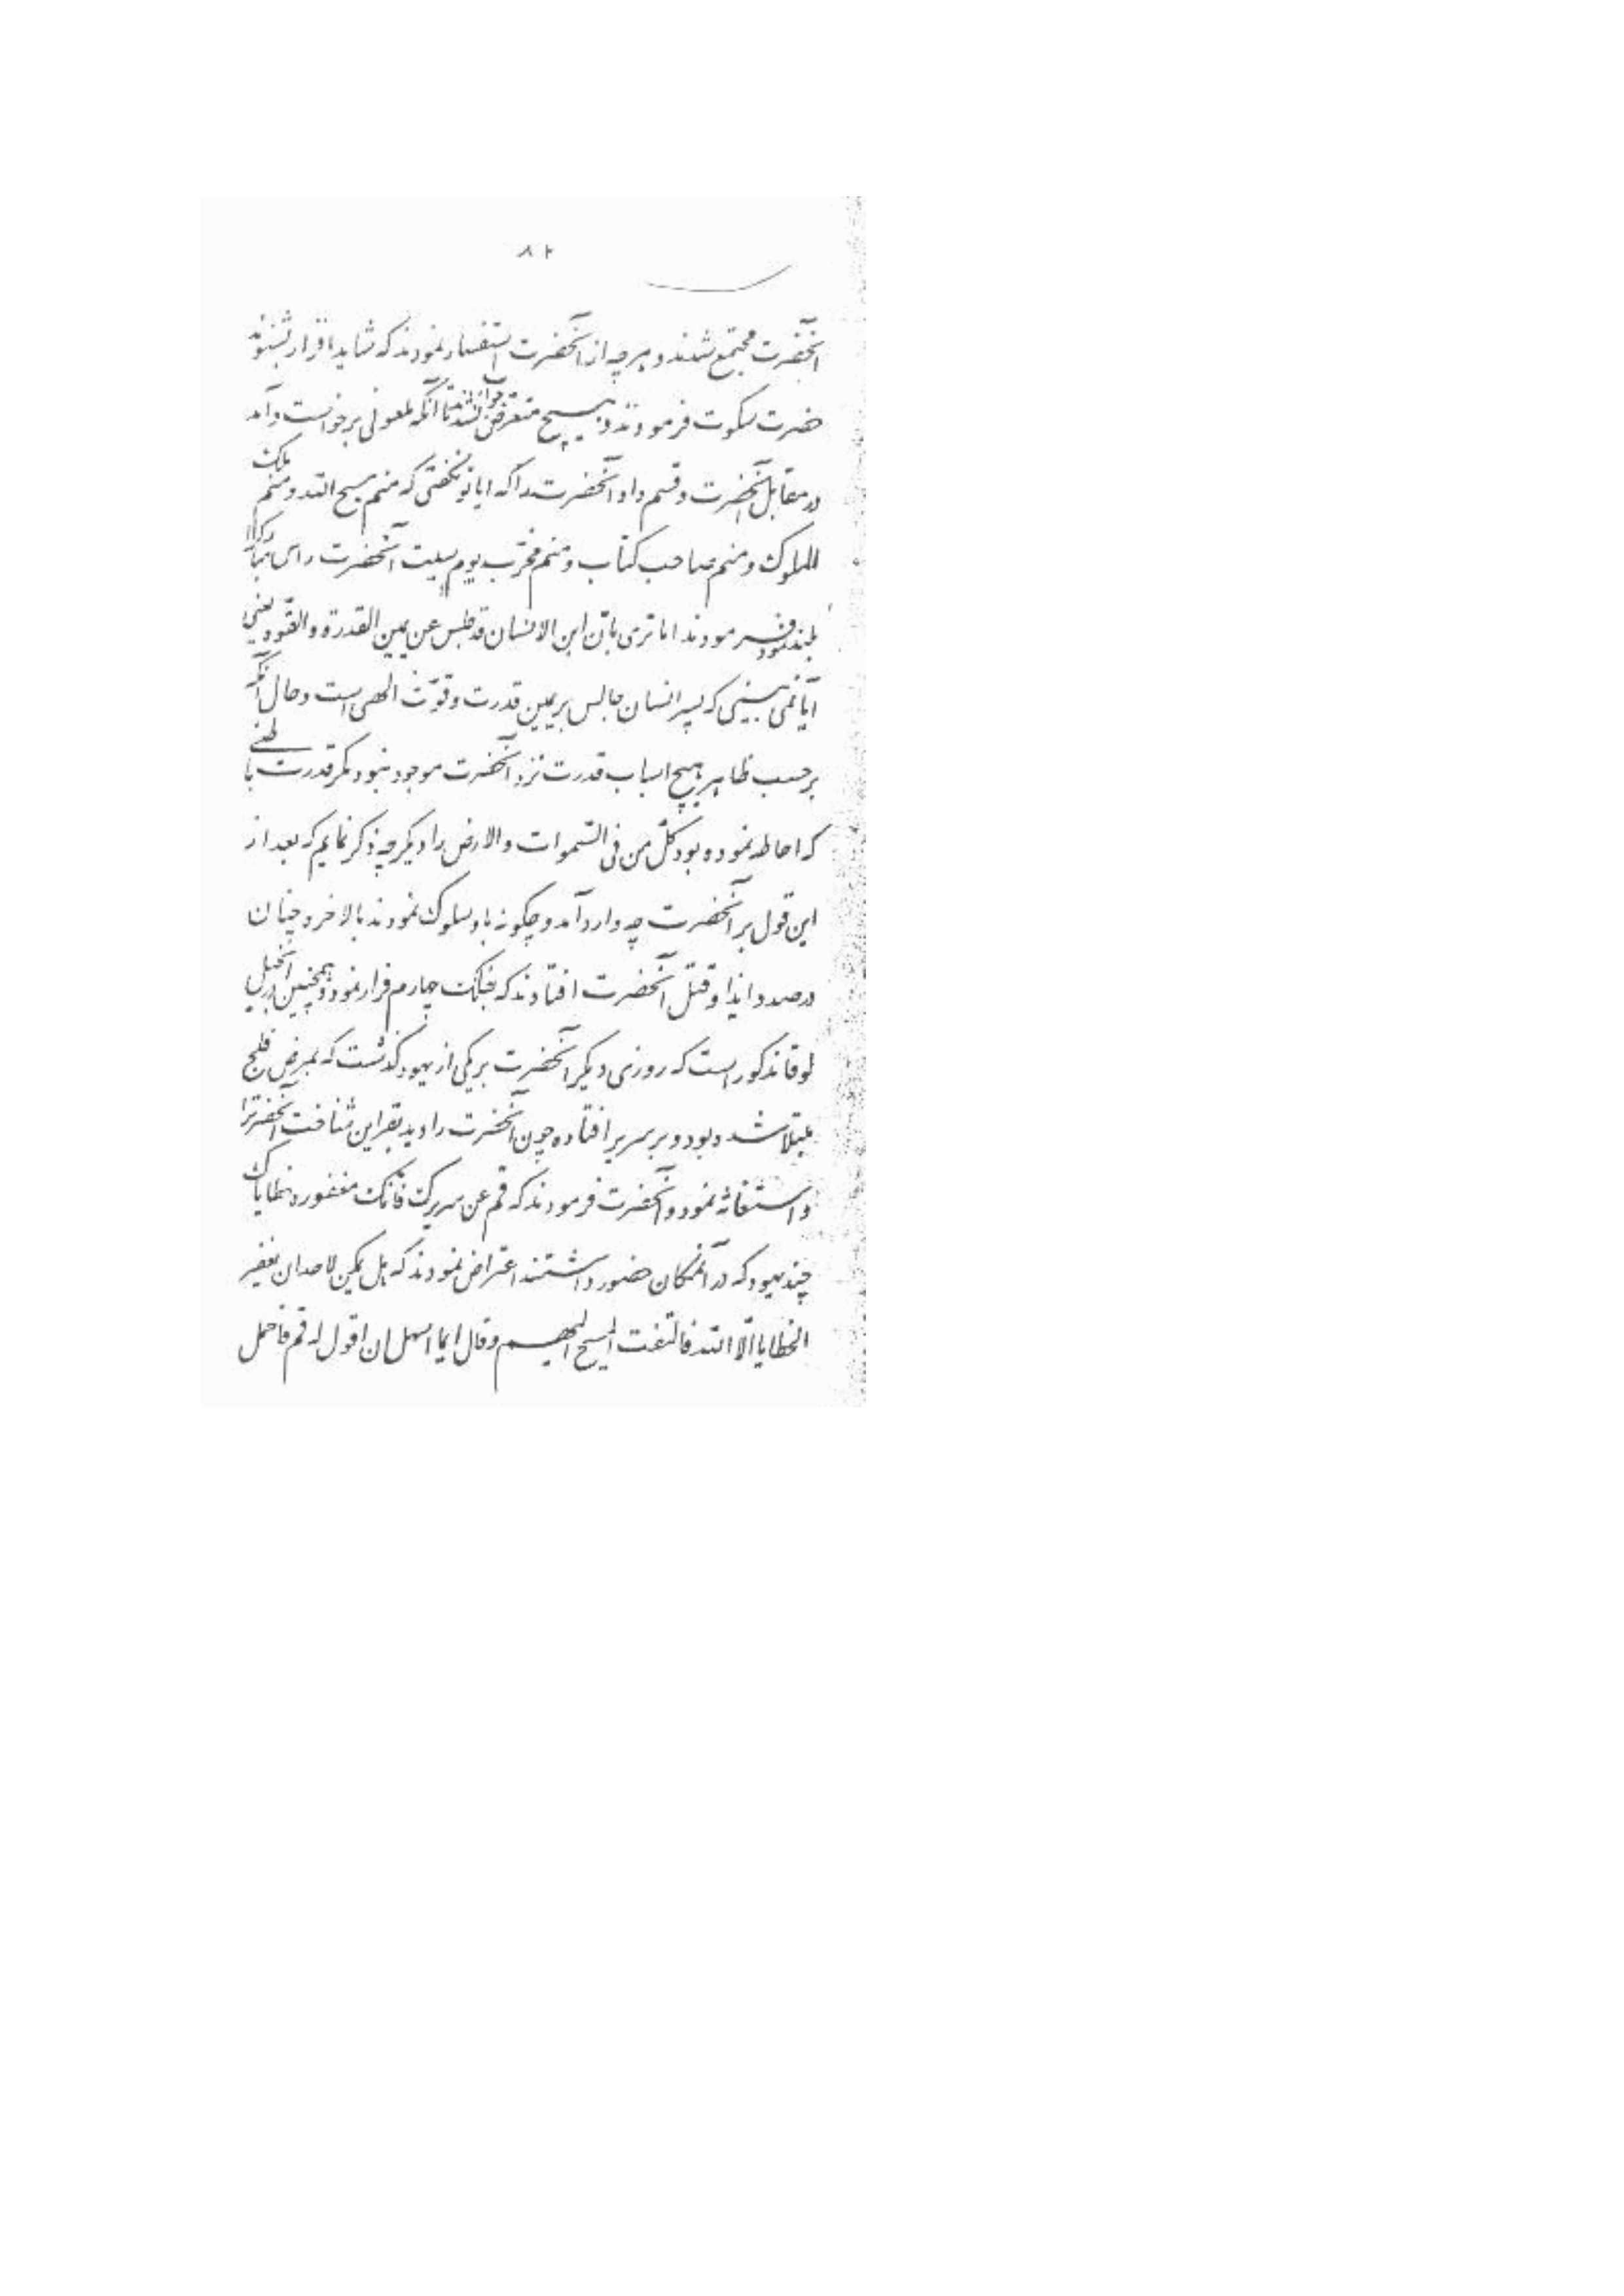 ۸۲
آنحضرت مجتمع شدند و هرچه از آنحضرت استفسار نمودند که شاید اقرار بشنوند
حضرت سکوت فرمودند و بهیچ متعرض جواب نشدند تا آنکه ملعونی برخواست و آمد
در مقابل آنحضرت و قسم داد آنحضرت را که ایا تو نگفتی که منم مسیح الله و منم ملک
الملوک و منم صاحب کتاب و منم مخرّب یوم سبت آنحضرت راس مبارک را
بلند نموده فرمودند اما تری بانّ ابن الانسان قد جلس عن یمین القدرة و القوة یعنی
آیا نمی بینی که پسر انسان جالس بر یمین قدرت و قوّت الهی است و حال آنکه
بر حسب ظاهر هیچ اسباب قدرت نزد آنحضرت موجود نبود مگر قدرت باطنی
که احاطه نموده بود کلّ من فی السّموات و الارض را دیگر چه ذکر نمایم که بعد از
این قول بر آنحضرت چه وارد آمد و چگونه باو سلوک نمودند بالاخره چنان
در صدد ایذا و قتل آنحضرت افتادند که بفلک چهارم فرار نمود و همچنین در انجیل
لوقا مذکور است که روزی دیگر آنحضرت بر یکی از یهود گذشت که بمرض فلج
مبتلا شده بود و بر سریر افتاده چون آنحضرت را دید بقراین شناخت آنحضرترا
و استغاثه نمود و آنحضرت فرمودند که قم عن سریرک فانّک مغفورة خطایاک
چند یهود که در آنمکان حضور داشتند اعتراض نمودند که هل یمکن لاحد ان یغفر
الخطایا الّا الله فالتفت المسیح الیهم و قال ایما اسهل ان اقول له قم فاحمل